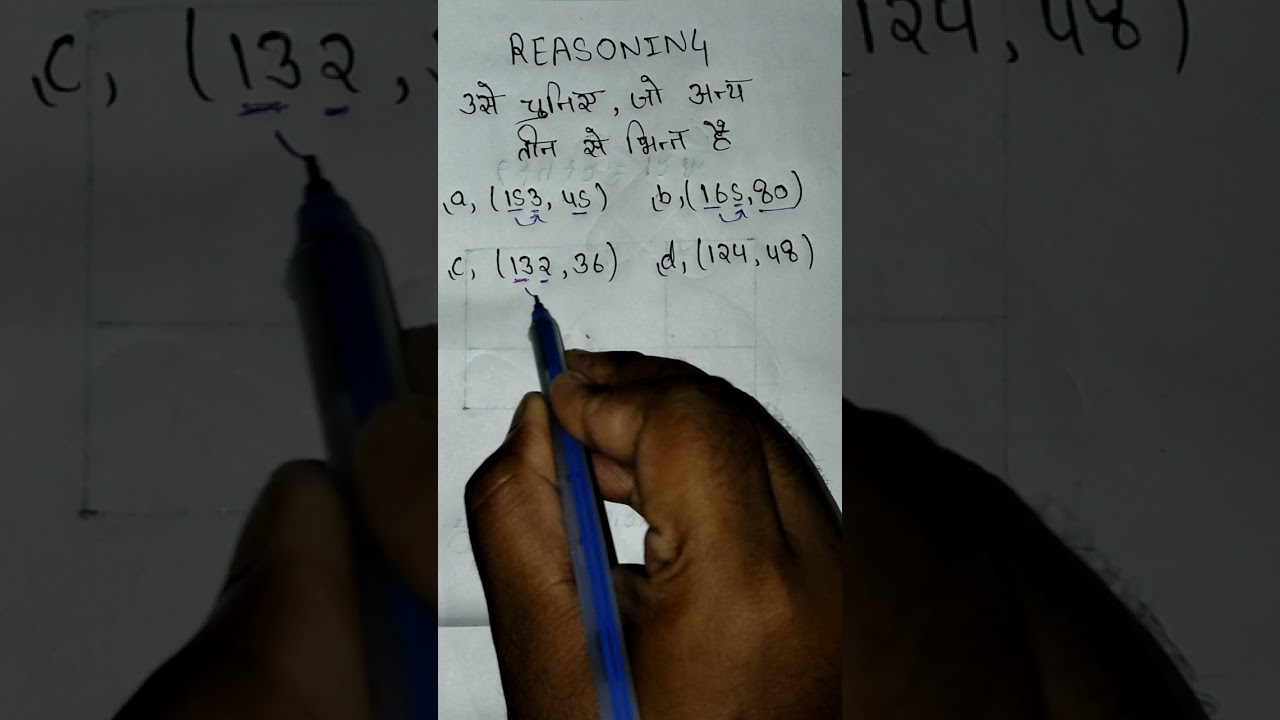 REASONING
उसे चुनिए, जो अन्य
तीन से भिन्न है
a, (153, 45) b, (165, 80)
c, (132, 36) d, (124, 48)